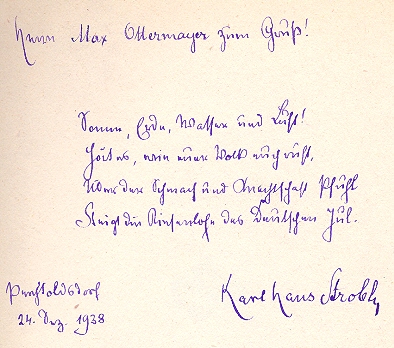 Herrn Max Ottermayer zum Gruß!
Sonne, Erde, Wasser und Luft!
Hört es, wie euer Volk euch ruft,
Über der Schmach und Knechtschaft Pfuhl
Steigt die Riesenlohe des Deutschen Jul.
Perchtoldsdorf
24. Dez. 1938
Karl Hans Strobl